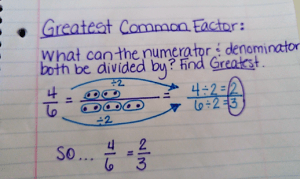 Greatest Common Factor:
What can the numerator & denominator
both be divided by? Find Greatest.
÷2
4/6 = = 4÷2=2 / 6÷2=3
÷2
SO... 4/6 = 2/3